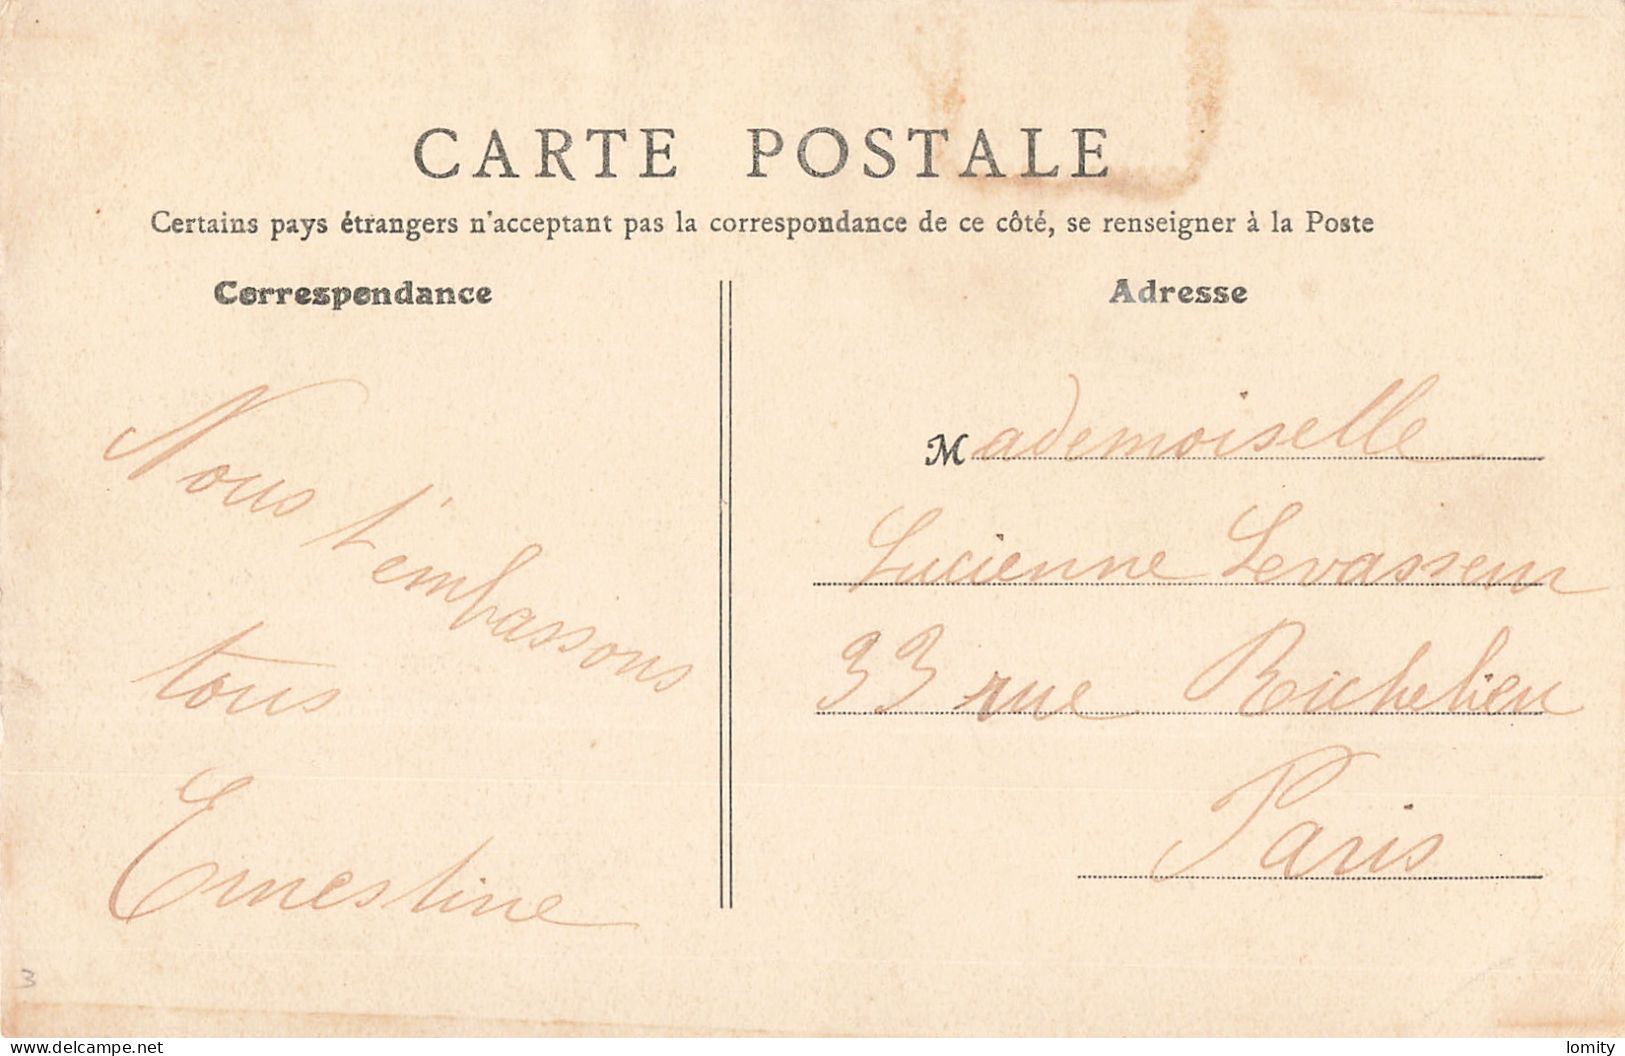 CARTE POSTALE
Certains pays étrangers n'acceptant pas la correspondance de ce côté, se renseigner à la Poste
Correspondance
Nous t'embassons
tous
Ernestine
3
Adresse
Mademoiselle
Lucienne Levasseur
33 rue Richelieu
Paris
www.delcampe.net
lomity